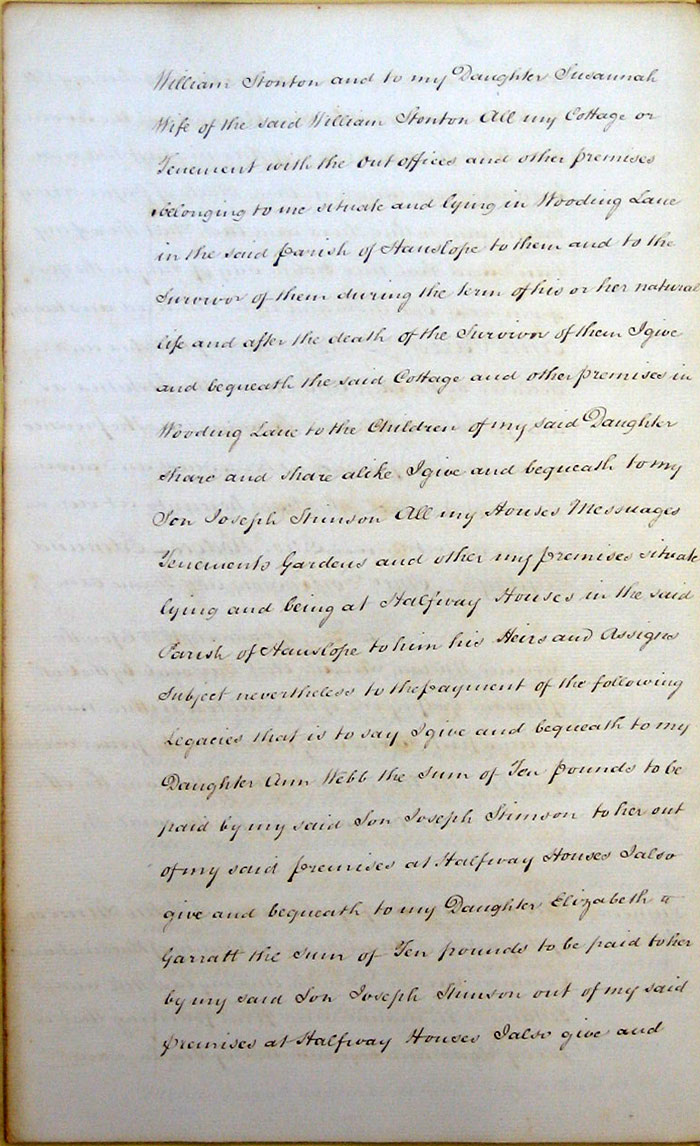 William Stonton and to my Daughter Susannah
Wife of the said William Stonton All my Cottage or
Tenement with the Out offices and other premises
belonging to me situate and lying in Wooding Lane
in the said Parish of Hanslope to them and to the
Survivor of them during the term of his or her natural
life and after the death of the Survivor of them I give
and bequeath the said Cottage and other premises in
Wooding Lane to the Children of my said Daughter
share and share alike. I give and bequeath to my
Son Joseph Stimson All my Houses Messuages
Tenements Gardens and other my premises situate
lying and being at Halfway Houses in the said
Parish of Hanslope to him his Heirs and Assigns
Subject nevertheless to the payment of the following
Legacies that is to say I give and bequeath to my
Daughter Ann Webb the Sum of Ten Pounds to be
paid by my said Son Joseph Stimson to her out
of my said premises at Halfway Houses I also
give and bequeath to my Daughter Elizabeth
Garratt the Sum of Ten pounds to be paid to her
by my said Son Joseph Stimson out of my said
premises at Halfway Houses I also give and